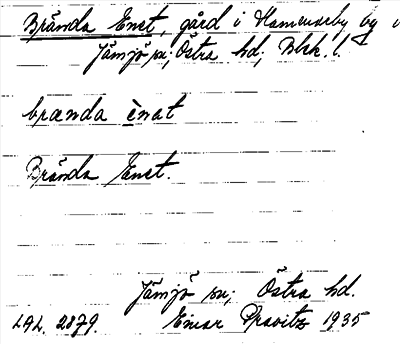 Brända Enet, gård i Hammarby by i
Jämjö sn; Östra hd, Blek. l.
brænda ènat
Brända Enet.
Jämjö sn; Östra hd.
LAL. 2879. Einar Pravitz 1935